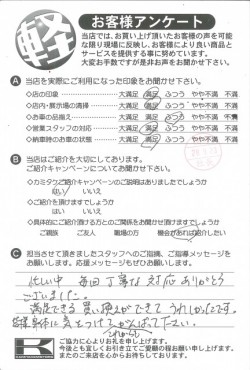 軽
お客様アンケート
当店では、お買い上げ頂いたお客様の声を可能
な限り現場に反映し、お客様により良い商品と
サービスを提供する事に努めています。
大変お手数ですが是非お声をお聞かせ下さい。
A 当店を実際にご利用になった印象をお聞かせ下さい。
◇店の印象 大満足 満足 ふつう やや不満 不満
◇店内・展示場の清掃 大満足 満足 ふつう やや不満 不満
◇お車の品揃え 大満足 満足 ふつう やや不満 不満
◇営業スタッフの対応 大満足 満足 ふつう やや不満 不満
◇納車時のお車の状態 大満足 満足 ふつう やや不満 不満
B 当店はご紹介を大切にしております。
ご紹介キャンペーンについてお聞かせ下さい。
◇カミタケご紹介キャンペーンのご説明はありましたでしょうか
はい いいえ
◇ご紹介を頂けますでしょうか
はい いいえ
◇具体的にご紹介頂ける方とのご関係をお聞かせ頂けますでしょうか
ご親族 ご友人 職場の方 機会があれば紹介したい
C 担当させて頂きましたスタッフへのご指摘、ご指導メッセージを
お願いします。応援メッセージもぜひお願いします。
忙しい中 毎回丁寧な対応ありがとう
ございました。
満足できる買い物ができて うれしかったです。
身体に気をつけてこれからもがんばって下さい。
K
ご協力に心よりお礼を申し上げます。
今後とも宜しくお引き立てご愛顧の程お願い申し上げます。
またのご来店を心からお待ちしております。